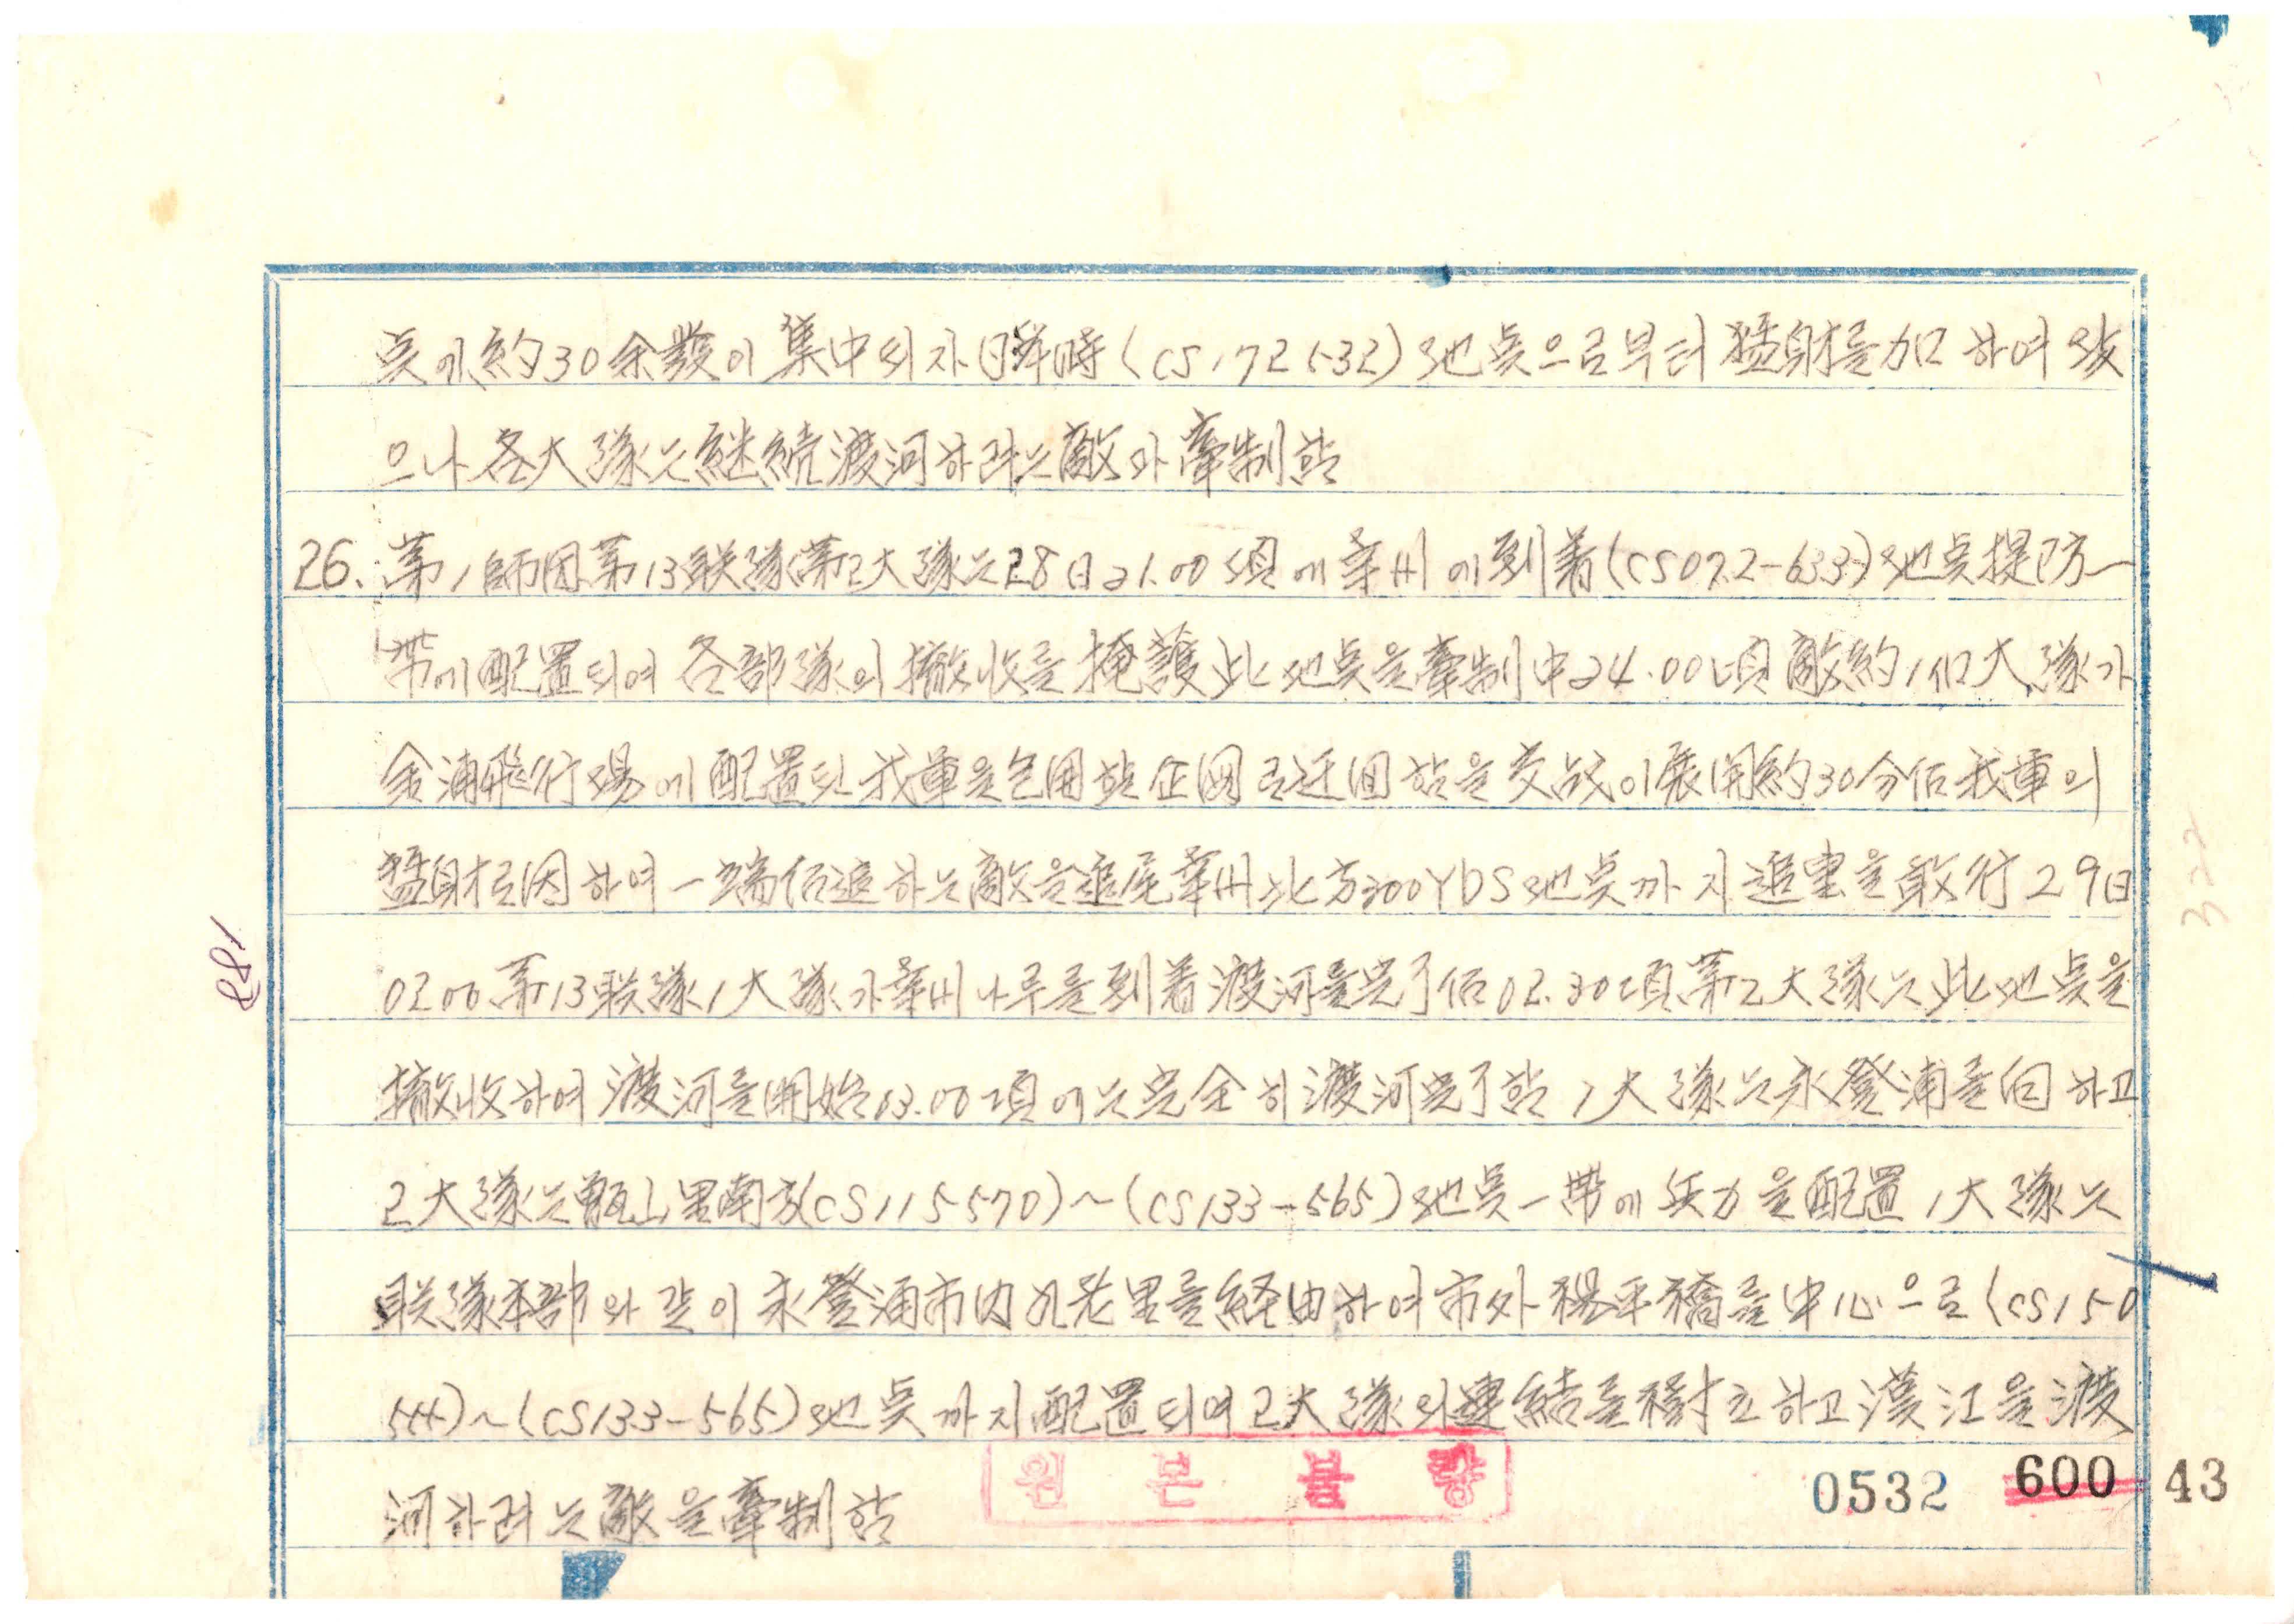 点에 約30余發이 集中되자 同時 (CS172532) 地点으로부터 猛射를 加하여 왔
으나 各大隊는 継続渡河하려는 敵와 牽制함
26. 第1師団 第13联隊 第2大隊는 28日 21.00頃에 幸州에 到着 (CS072-633) 地点 提防一
帯에 配置되여 各部隊의 撤收를 掩護 此地点을 牽制中 24.00頃 敵 約1個大隊가
金浦飛行場에 配置된 我軍을 包囲할 企図로 迂回함을 交战이 展開 約30分後 我軍의
猛射로 因하여 一端 后退하는 敵을 追尾 幸州 北方 300YDS 地点까지 追害을 敢行 29日
02.00 第13联隊 1大隊가 幸州나루를 到着 渡河를 完了 后 02.30頃 第2大隊는 此地点을
撤收하여 渡河를 開始 03.00頃에는 完全히 渡河完了함 1大隊는 永登浦를 向하고
2大隊는 甑山里 南方 (CS115570)~(CS133-565) 地点一帯에 兵力을 配置 1大隊는
联隊本部와 같이 永登浦市内 九老里를 経由하여 市外 楊平橋를 中心으로 (CS150
544)~(CS133-565) 地点까지 配置되여 2大隊와 連結를 樹立하고 漢江을 渡
河하려는 敵을 牽制함
원본불량
0532 600 43
322